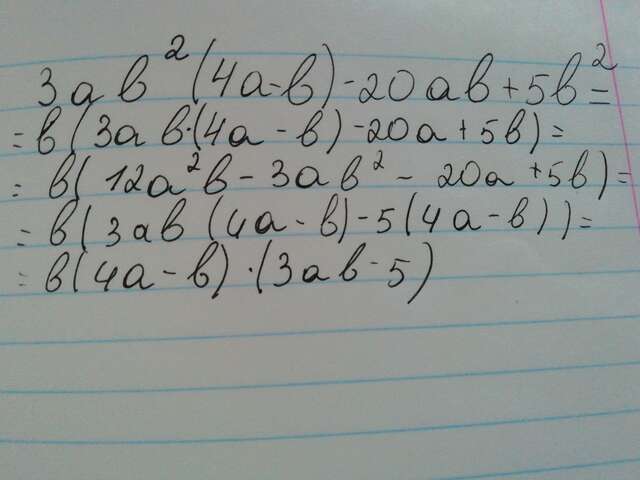 3ab²(4a-b)-20ab+5b²=
=b(3ab·(4a-b)-20a+5b)=
=b(12a²b-3ab²-20a+5b)=
=b(3ab(4a-b)-5(4a-b))=
=b(4a-b)·(3ab-5)